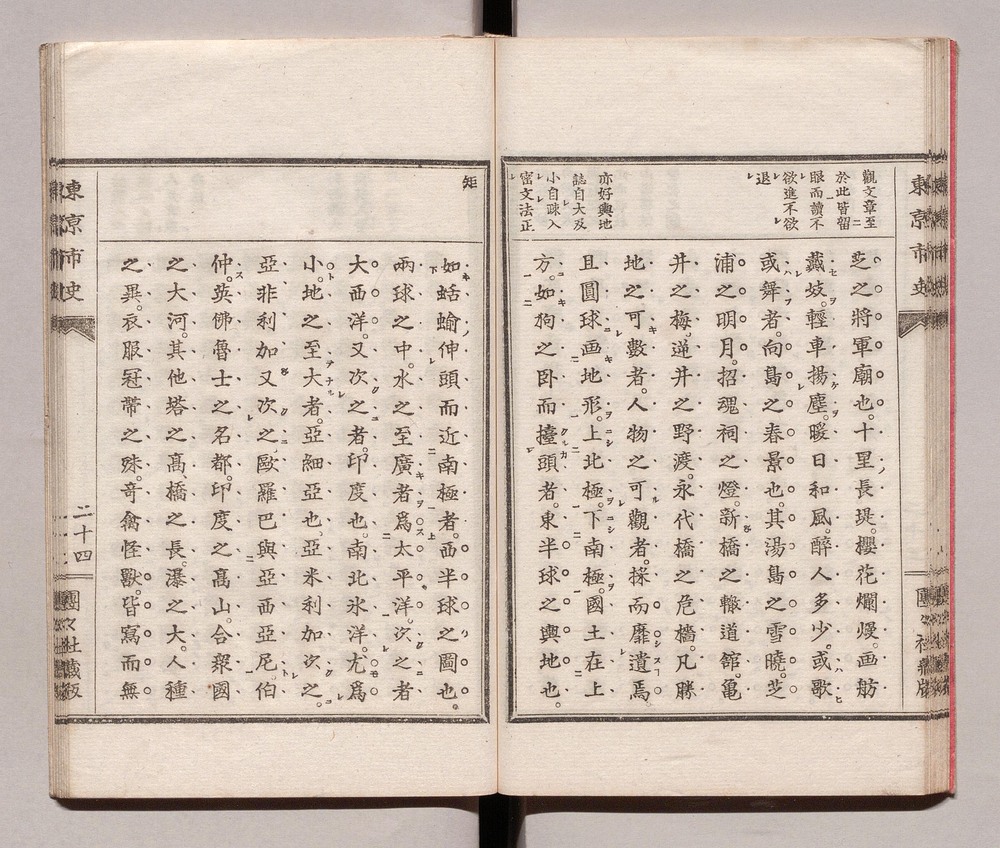 東京市史
觀文章至
於此皆留
眼而讀不
欲進不欲
退
亦好輿地
誌自大及
小自疎入
密文法正
芝之將軍廟也。十里長堤。櫻花爛熳。画舫
藏妓。輕車揚塵。暖日和風。醉人多少。或歌
或舞者。向島之春景也。其湯島之雪曉。芝
浦之明月。招魂祠之燈。新橋之轍道館。亀
井之梅。逆井之野渡。永代橋之危檣。凡勝
地之可數者。人物之可觀者。採而靡遺焉
且圓球画地形。上北極。下南極。國土在上
方。如狗之卧而擡頭者。東半球之輿地也。
矩
如蛞蝓伸頭而近南極者。西半球之圖也。
兩球之中。水之至廣者爲太平洋。次之者
大西洋。又次之者。印度也。南北氷洋。尤爲
小。地之至大者。亞細亞也。亞米利加次之。
亞非利加又次之。歐羅巴與亞西亞尼。伯
仲。英佛魯士之名都。印度之高山。合衆國
之大河。其他塔之高。橋之長。瀑之大。人種
之異。衣服冠帶之殊。奇禽怪獸。皆寫而無
東京市史
二十四
團々社藏版